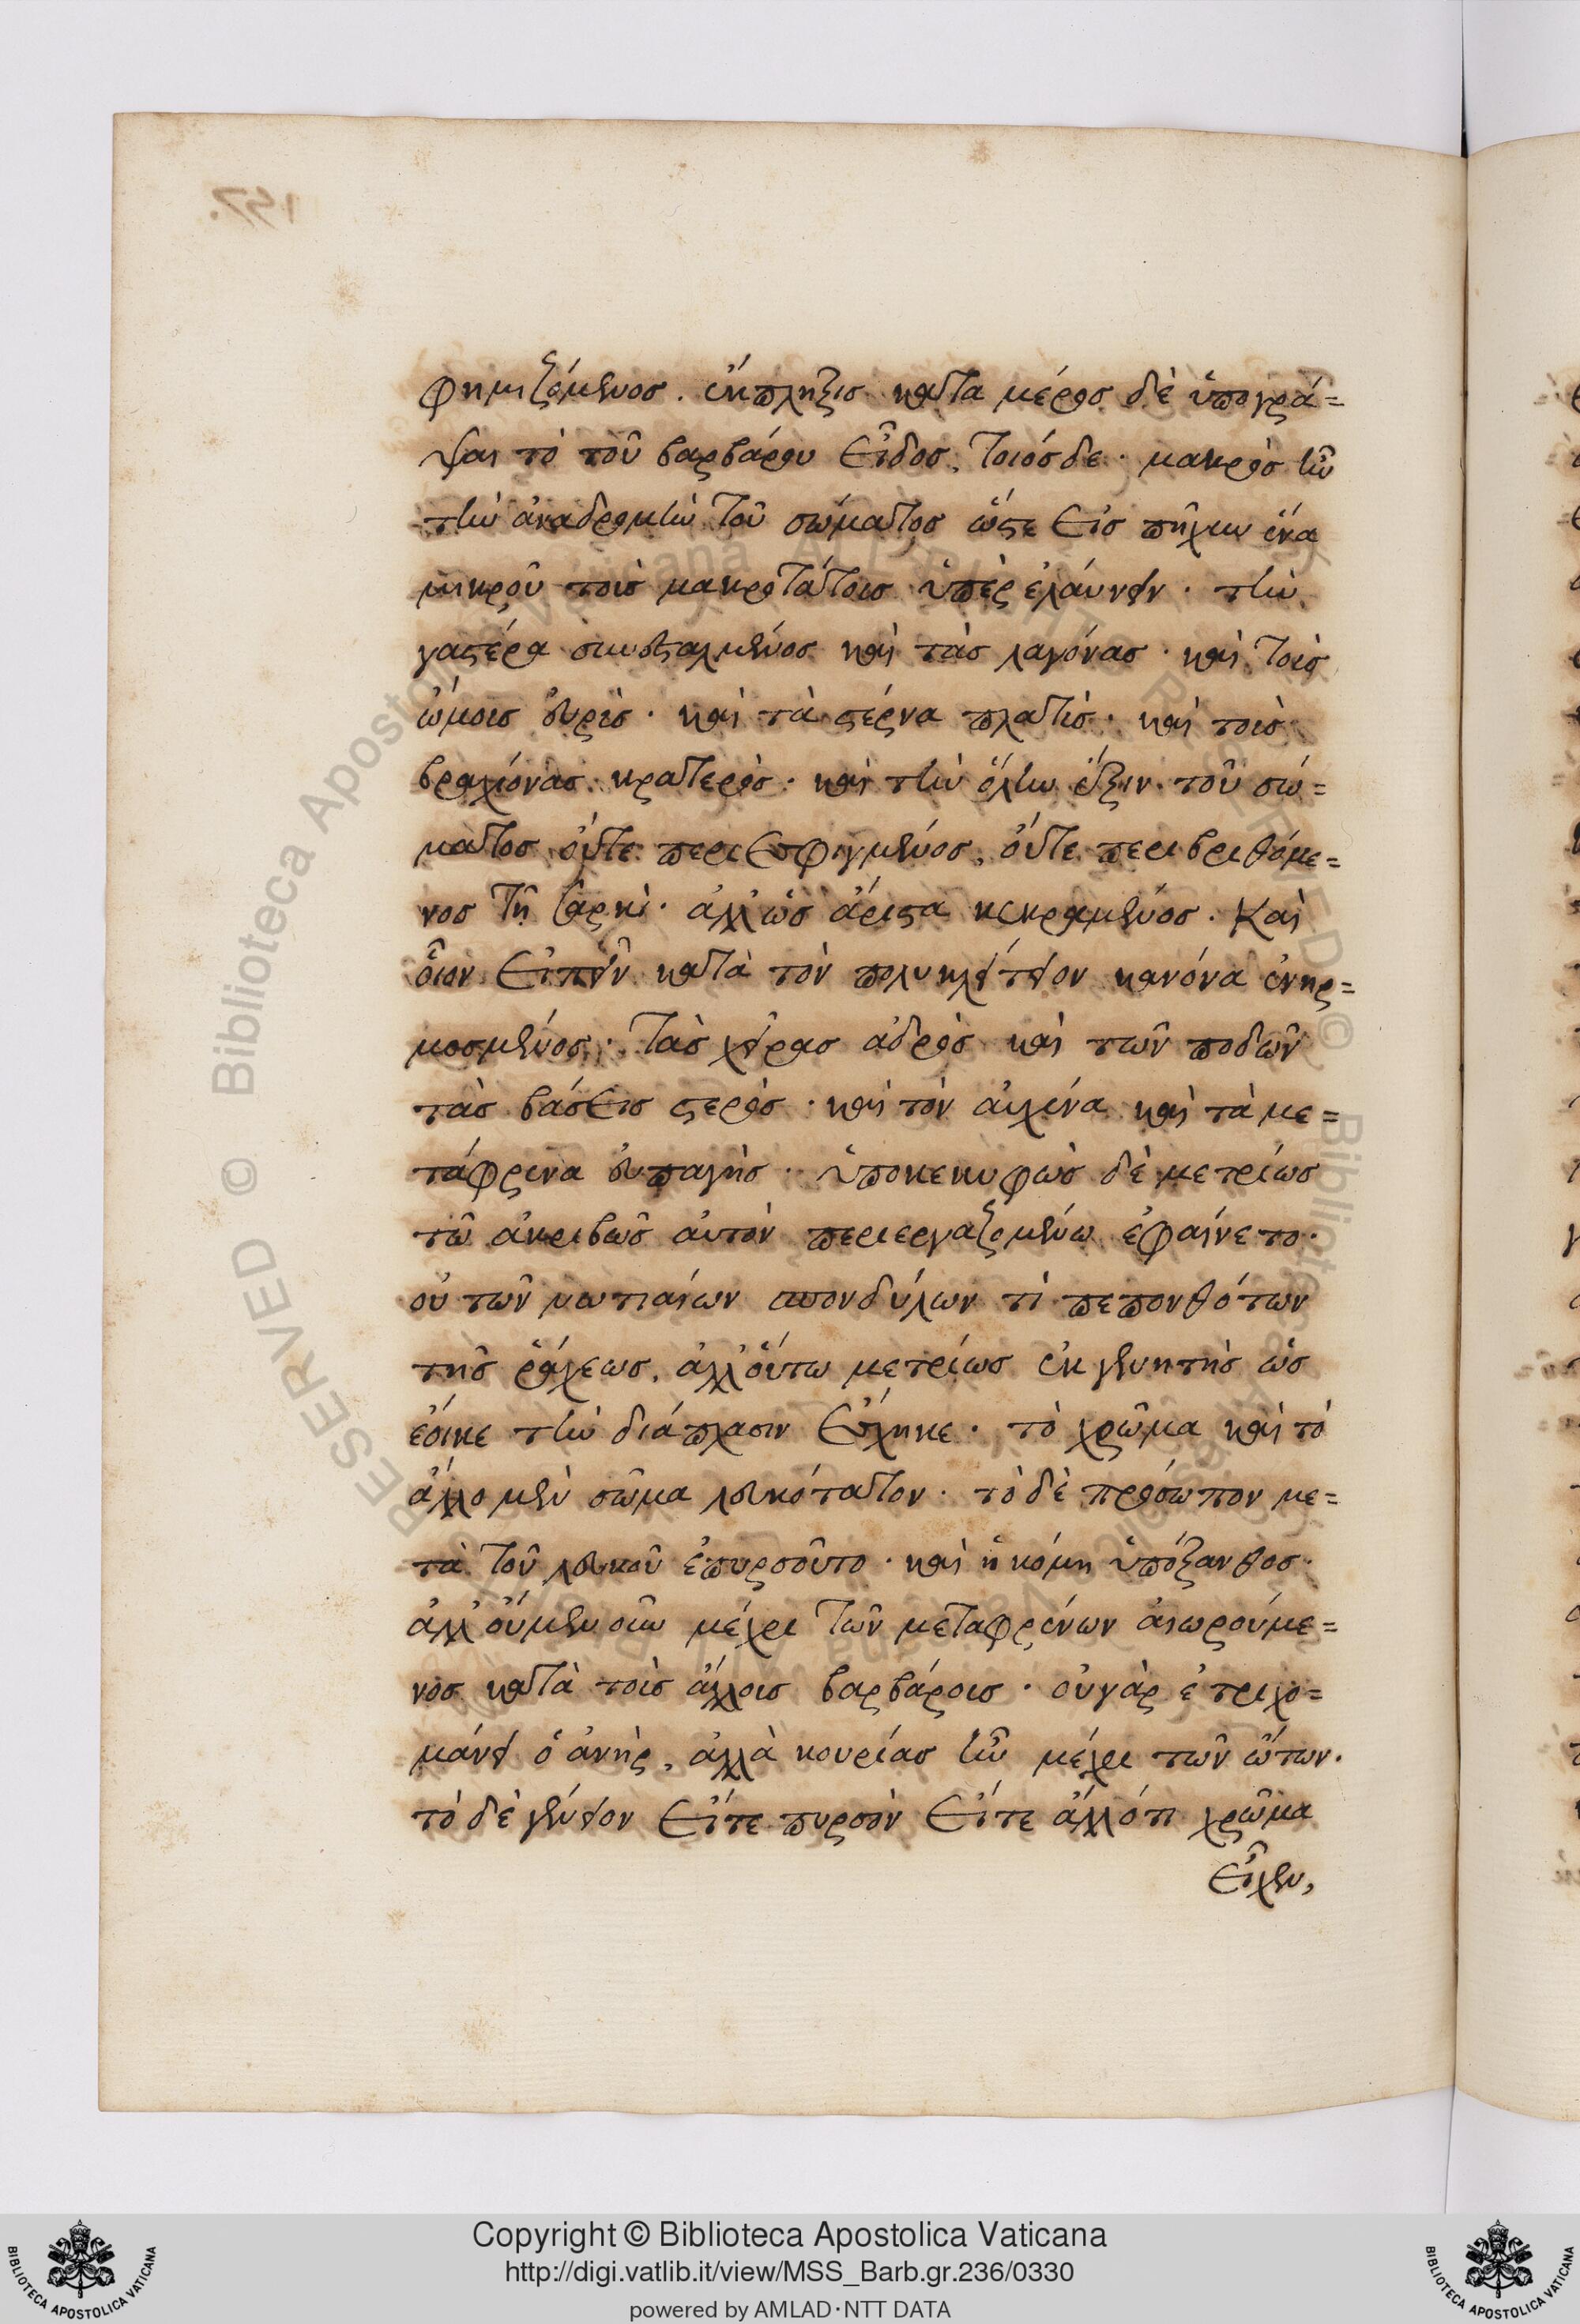 157.
φημιζόμενος. ἔκπληξις κατα μέρος δὲ ὑπογρά=
ψαι τὸ τοῦ βαρβάρου εἶδος, τοιόσδε· μακρὸς ἦν
τὴν ἀναδρομὴν τοῦ σώματος ὥστε εἰς πῆχυν ἕνα
μικροῦ τοὶς μακροτάτοις ὑπὲρ ἐλάυνειν· τὴν
γαστέρα συνεσταλμένος καὶ τὰς λαγόνας· καὶ τοὶς
ὤμοις ἐυρὶς· καὶ τὰ στέρνα πλατὶς· καὶ τοὶς
βραχίονας κρατερὸς· καὶ τὴν ὅλην ἕξιν τοῦ σώ=
ματος οὔτε περιεσφιγμένος, οὔτε περιβριθόμε=
νος τῆ σαρκὶ· ἀλλ' ὡς ἄριστα κεκραμένος. Καὶ
οἷον εἰπεῖν κατὰ τὸν πολυκλείτειον κανόνα ἐνηρ=
μοσμένος· τὰς χεῖρας ἁδρὸς καὶ τῶν ποδῶν
τὰς βάσεις στερὸς· καὶ τὸν ἀυχένα καὶ τὰ με=
τάφρενα ἐυπαγὴς· ὑποκεκυφὼς δὲ μετρίως
τῶ ἀκριβῶς ἀυτὸν περιεργαζομένω ἐφαίνετο·
οὐ τῶν νωτιαίων σπονδύλων τὶ πεπονθότων
τῆς ῥάχεως, ἀλλ' ὅυτω μετρίως ἐκ γενητὴς ὡς
ἔοικε τὴν διάπλασιν ἔσχηκε· τὸ χρῶμα καὶ τὸ
ἄλλο μὲν σῶμα λευκότατον· τὸ δὲ πρόσωπον με=
τὰ τοῦ λευκοῦ ἐπυρσοῦτο· καὶ ἡ κόμη ὑπόξανθος·
ἀλλ' οὔμενουν μέχρι τῶν μεταφρένων ἀιωρούμε=
νος κατὰ τοὶς ἄλλοις βαρβάροις· οὐγὰρ ἐτριχο=
μάνει ὁ ἀνὴρ, ἀλλὰ κουρίας ἦν μέχρι τῶν ὤτων.
τὸ δὲ γένειον εἴτε πυρσὸν εἴτε ἀλλότι χρῶμα
εἶχεν,
Copyright © Biblioteca Apostolica Vaticana
http://digi.vatlib.it/view/MSS_Barb.gr.236/0330
powered by AMLAD·NTT DATA
BIBLIOTECA APOSTOLICA VATICANA
BIBLIOTECA APOSTOLICA VATICANA